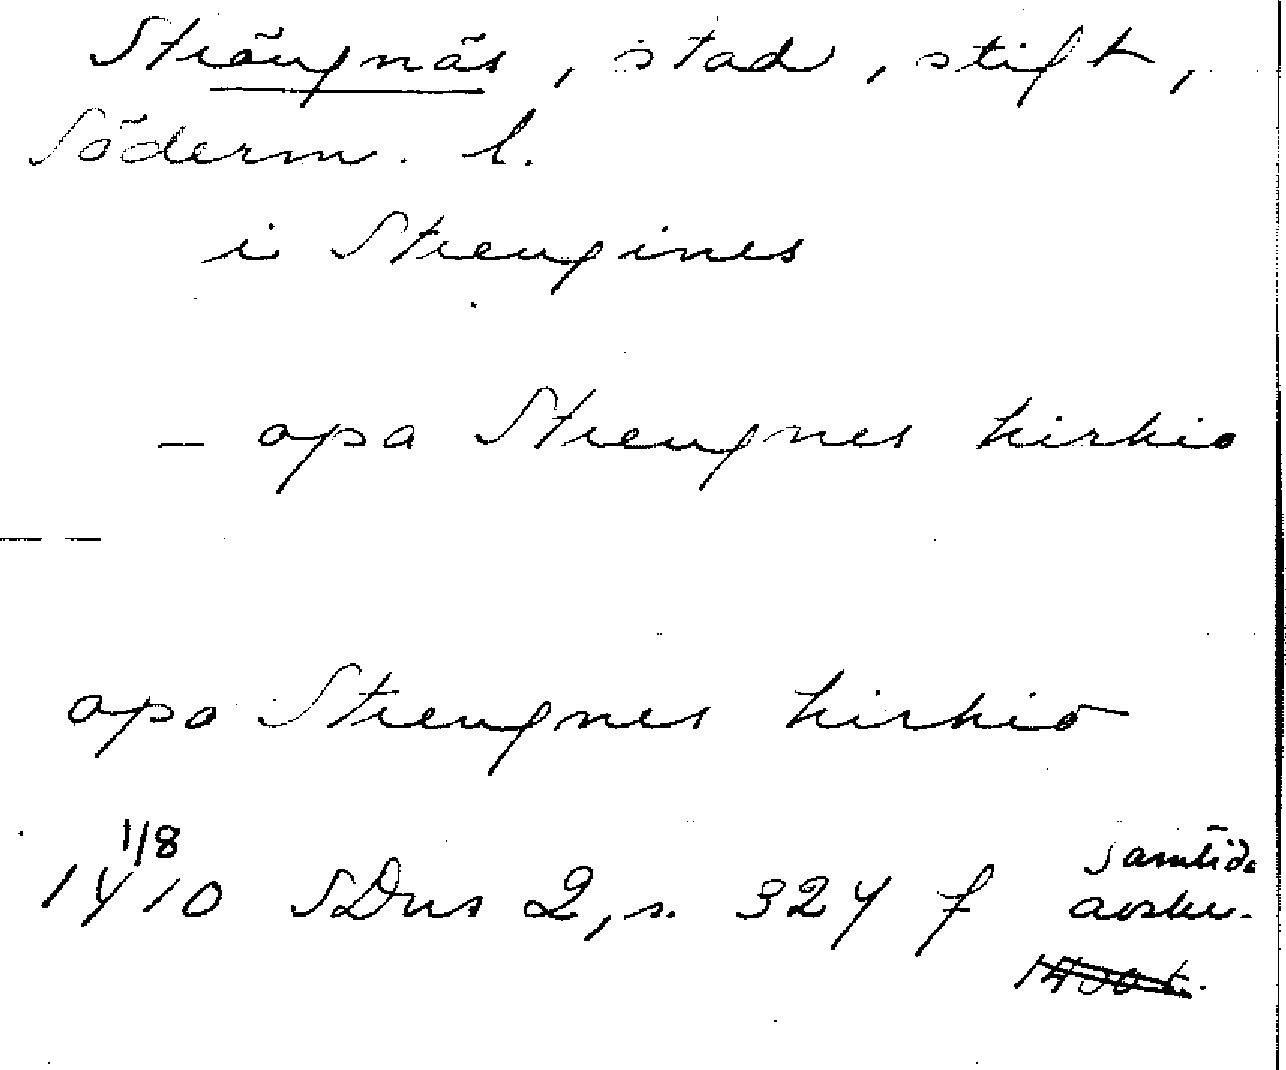 Strängnäs, stad, stift,
Söderm. l.
i Strengines
- apa Strengnes kirkio
apa Strengnes kirkio
1/8
1410 SDns 2, s. 324 f samtida
avskr.